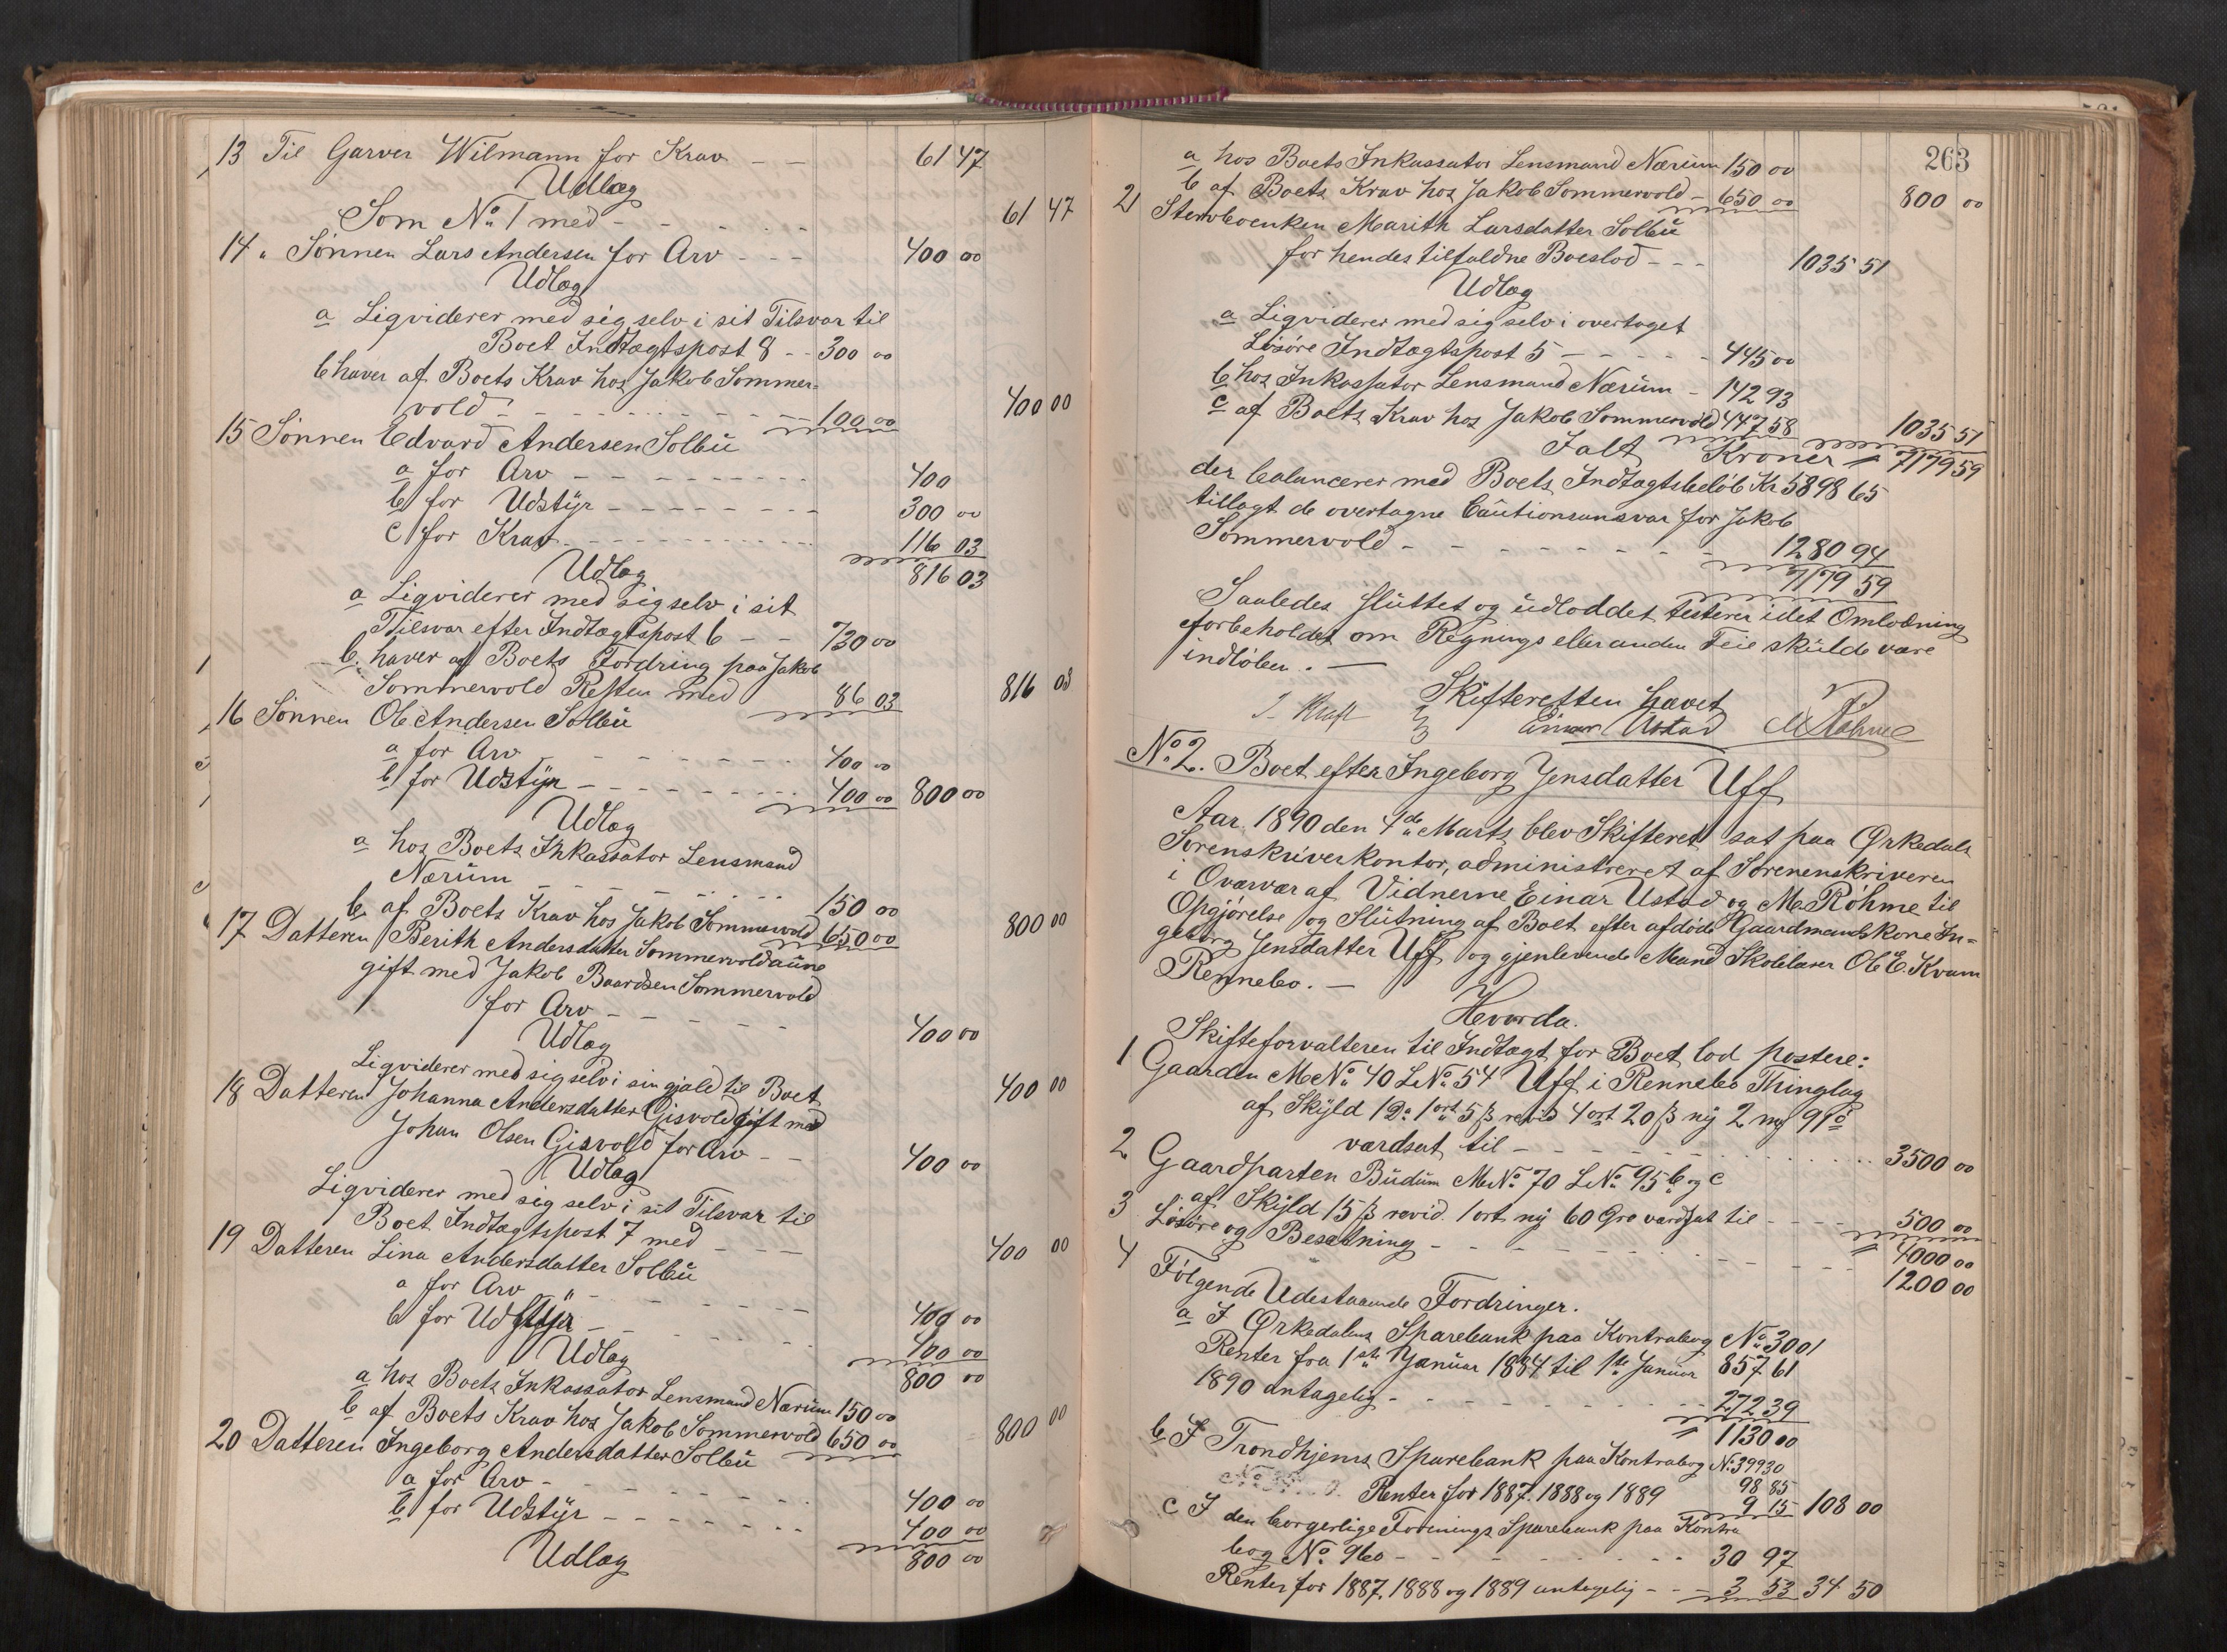 13 Til Garver Wilmann for Krav - - 61 47
Udlæg
Som No 1 med - - - - - 61 47
14 " Sønnen Lars Andersen for Arv - - - 400 00
Udlæg
a Liqviderer med sig selv i sit Tilsvar til
Boet Indtægtspost 8 - - 300 00
b haver af Boets Krav hos Jakob Sommer=
vold - - - - - 100 00 400 00
15 Sønnen Edvard Andersen Solbu
a for Arv - - - - - 400
b for Udstyr - - - - - 300 00
c for Krav - - - - - 116 03
816 03
Udlæg
a Liqviderer med sig selv i sit
Tilsvar efter Indtægtspost 6 - - 730 00
b. haver af Boets Fordring paa Jakob
Sommervold Resten med 86 03 816 03
16 Sønnen Ole Andersen Solbu
a for Arv - - - - - 400 00
b for Udstyr - - - - - 400 00 800 00
Udlæg
a hos Boets Inkassator Lensmand
Nærum - - - - - 150 00
b. af Boets Krav hos Jakob Sommervold 650 00 800 00
17 Datteren Berith Andersdatter Sommervoldaune
gift med Jakob Baardsen Sommervold
for Arv - - - - - 400 00
Udlæg
Liqviderer med sig selv i sin gjæld til Boet 400 00
18 Datteren Johanna Andersdatter Gisvold gift med
Johan Olsen Gisvold for Arv - - 400 00
Udlæg
Liqviderer med sig selv i sit Tilsvar til
Boet Indtægtspost 7 med - - - 400 00
19 Datteren Lina Andersdatter Solbu
a for Arv - - - - - 400 00
b for Udstyr - - - - - 400 00
800 00
Udlæg
a hos Boets Inkassator Lensmand Nærum 150 00
b af Boets Krav hos Jakob Sommervold 650 00 800 00
20 Datteren Ingeborg Andersdatter Solbu
a for Arv - - - - - 400 00
b for Udstyr - - - - - 400 00
800 00
Udlæg
263
a hos Boets Inkassator Lensmand Nærum 150 00
b af Boets Krav hos Jakob Sommervold - 650 00 800 00
21 Stervboenken Marith Larsdatter Solbu
for hendes tilfaldne Boeslod - - - 1035 51
Udlæg
a Liqviderer med sig selv i overtaget
Løsøre Indtægtspost 5 - - - - - 445 00
b hos Inkassator Lensmand Nærum - 142 93
c af Boets Krav hos Jakob Sommervold 447 58 1035 51
Ialt Kroner = 7179 59
der balancerer med Boets Indtægtsbeløb Kr 5898 65
tillagt de overtagne Cautionsansvar for Jakob
Sommervold - - - - - 1280 94
7179 59
Saaledes sluttet og udloddet testerer idet Omlodning
forbeholdes om Regnings eller anden Feil skulde være
indløben. —
Skifteretten hævet
J. Kraft Einar Ustad M Røhme
No 2. Boet efter Ingeborg Jensdatter Uff
Aar 1890 den 4de Marts blev Skifteret sat paa Ørkedals
Sorenskriverkontor, administreret af Sorenenskriveren
i Overvær af Vidnerne Einar Ustad og M. Røhme til
Opgjørelse og Slutning af Boet efter afdøde Gaardmandskone In=
geborg Jensdatter Uff og gjenlevende Mand Skolelærer Ole E. Kvam
Rennebo. —
Hvorda.
Skifteforvalteren til Indtægt for Boet lod postere:
1 Gaarden M No 40 L No 54 Uff i Rennebo Thinglag
af Skyld 1 D. 1 ort 5 ß revid 4 ort 20 ß ny 2 m 91 ø
værdsat til - - - - - 3500 00
2 Gaardparten Budum M No 70 L No 95 b og c
af Skyld 15 ß revid. 1 ort ny 60 Øre værdsat til - - - - 500 00
= 4000 00
3 Løsøre og Besætning - - - - - 1200 00
4 Følgende Udestaaende Fordringer.
a I Ørkedalens Sparebank paa Kontrabog No 3001
857 61
Renter fra 1ste Januar 1884 til 1ste Januar
1890 antagelig - - - - - 272 39
= 1130 00
b I Trondhjems Sparebank paa Kontrabog No 39930
98 85
Renter for 1887. 1888 og 1889 9 15 108 00
c I den borgerlige Forenings Sparebank paa Kontra
bog No 960 - - - - - 30 97
Renter for 1887. 1888 og 1889 antagelig - - - 3 53 34 50